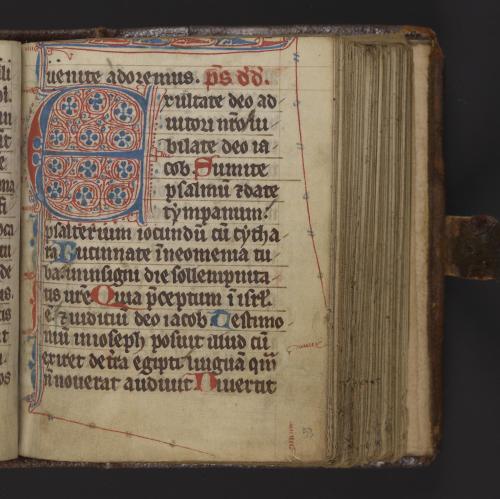 uenite adoremus. ps d'd'.
Exultate deo ad
iutori nrō iu
bilate deo ia
cob. Sumite
psalmū ⁊ date
tympanum:
psalterium iocundū cū cytha
ra Bucinnate ī neomenia tu
ba in insigni die sollempnita
tis urē Quia p̄ceptum ī isrl̄
ē. ⁊ iuditiū deo iacob Testimo
niū in ioseph posuit illud cū
exiret de tr̄a egipti linguā quā
n̄ nouerat audiuit Diuertit